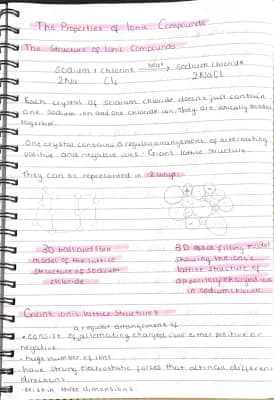 The Properties of Ionic Compounds
The Structure of Ionic Compounds
Sodium + Chlorine heat→ sodium chloride
2Na Cl₂ 2NaCl
Each crystal of sodium chloride doesn't just contain
one sodium ion and one chloride ion. They are ionically bonded
together.
One crystal contains a regular arrangement of alternating
positive and negative ions - Giant lattice structure
They can be represented in 2 ways
+ - + -
3D ball and stick
model of the lattice
structure of sodium
chloride
3D space filling model
showing the ionic
lattice structure of
oppositely charged ions
in sodium chloride
Giant ionic lattice structures
a regular arrangement of
• consist of alternating charged ions either positive or
negative
• huge number of ions
• have strong electrostatic forces that act in all different
directions
• exist in three dimensions